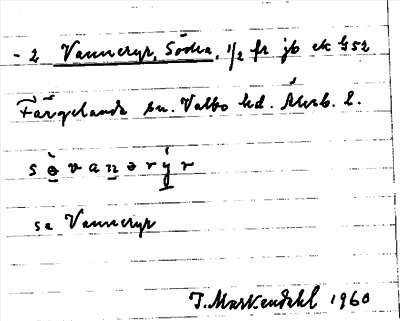 - 2 Vanneryr, Södra, 1/2 fr jb ek 452
Färgelanda sn. Valbo hd. Älvsb. l.
sè̱vaṉərý̱r
se Vanneryr
T. Markendahl 1960